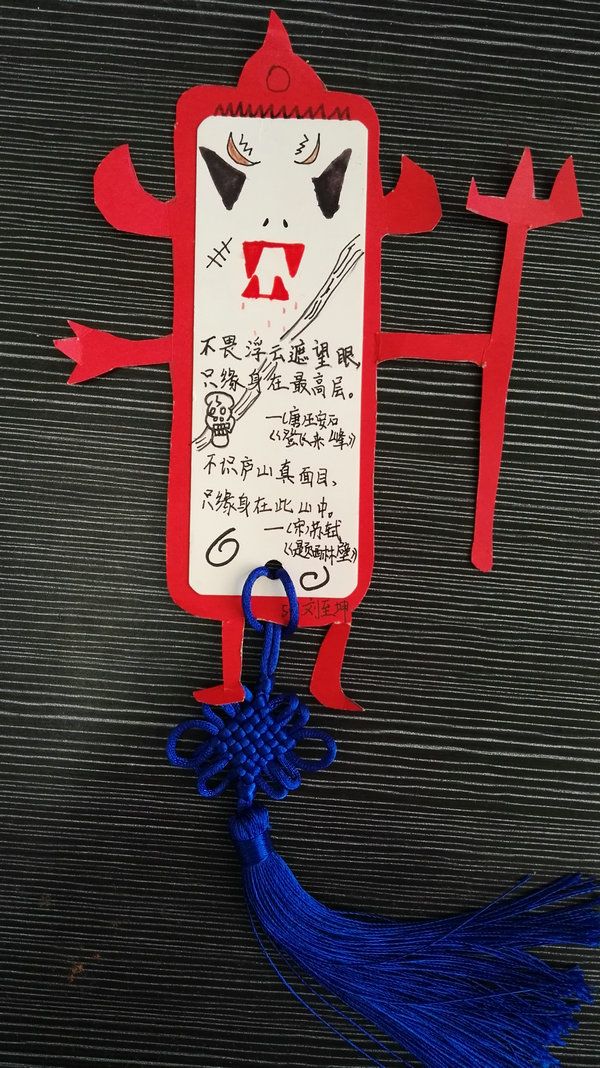 不畏浮云遮望眼,
只缘身在最高层。
—(唐)王安石
《登飞来峰》
不识庐山真面目、
只缘身在此山中。
—(宋)苏轼
《题西林壁》
刘至坤